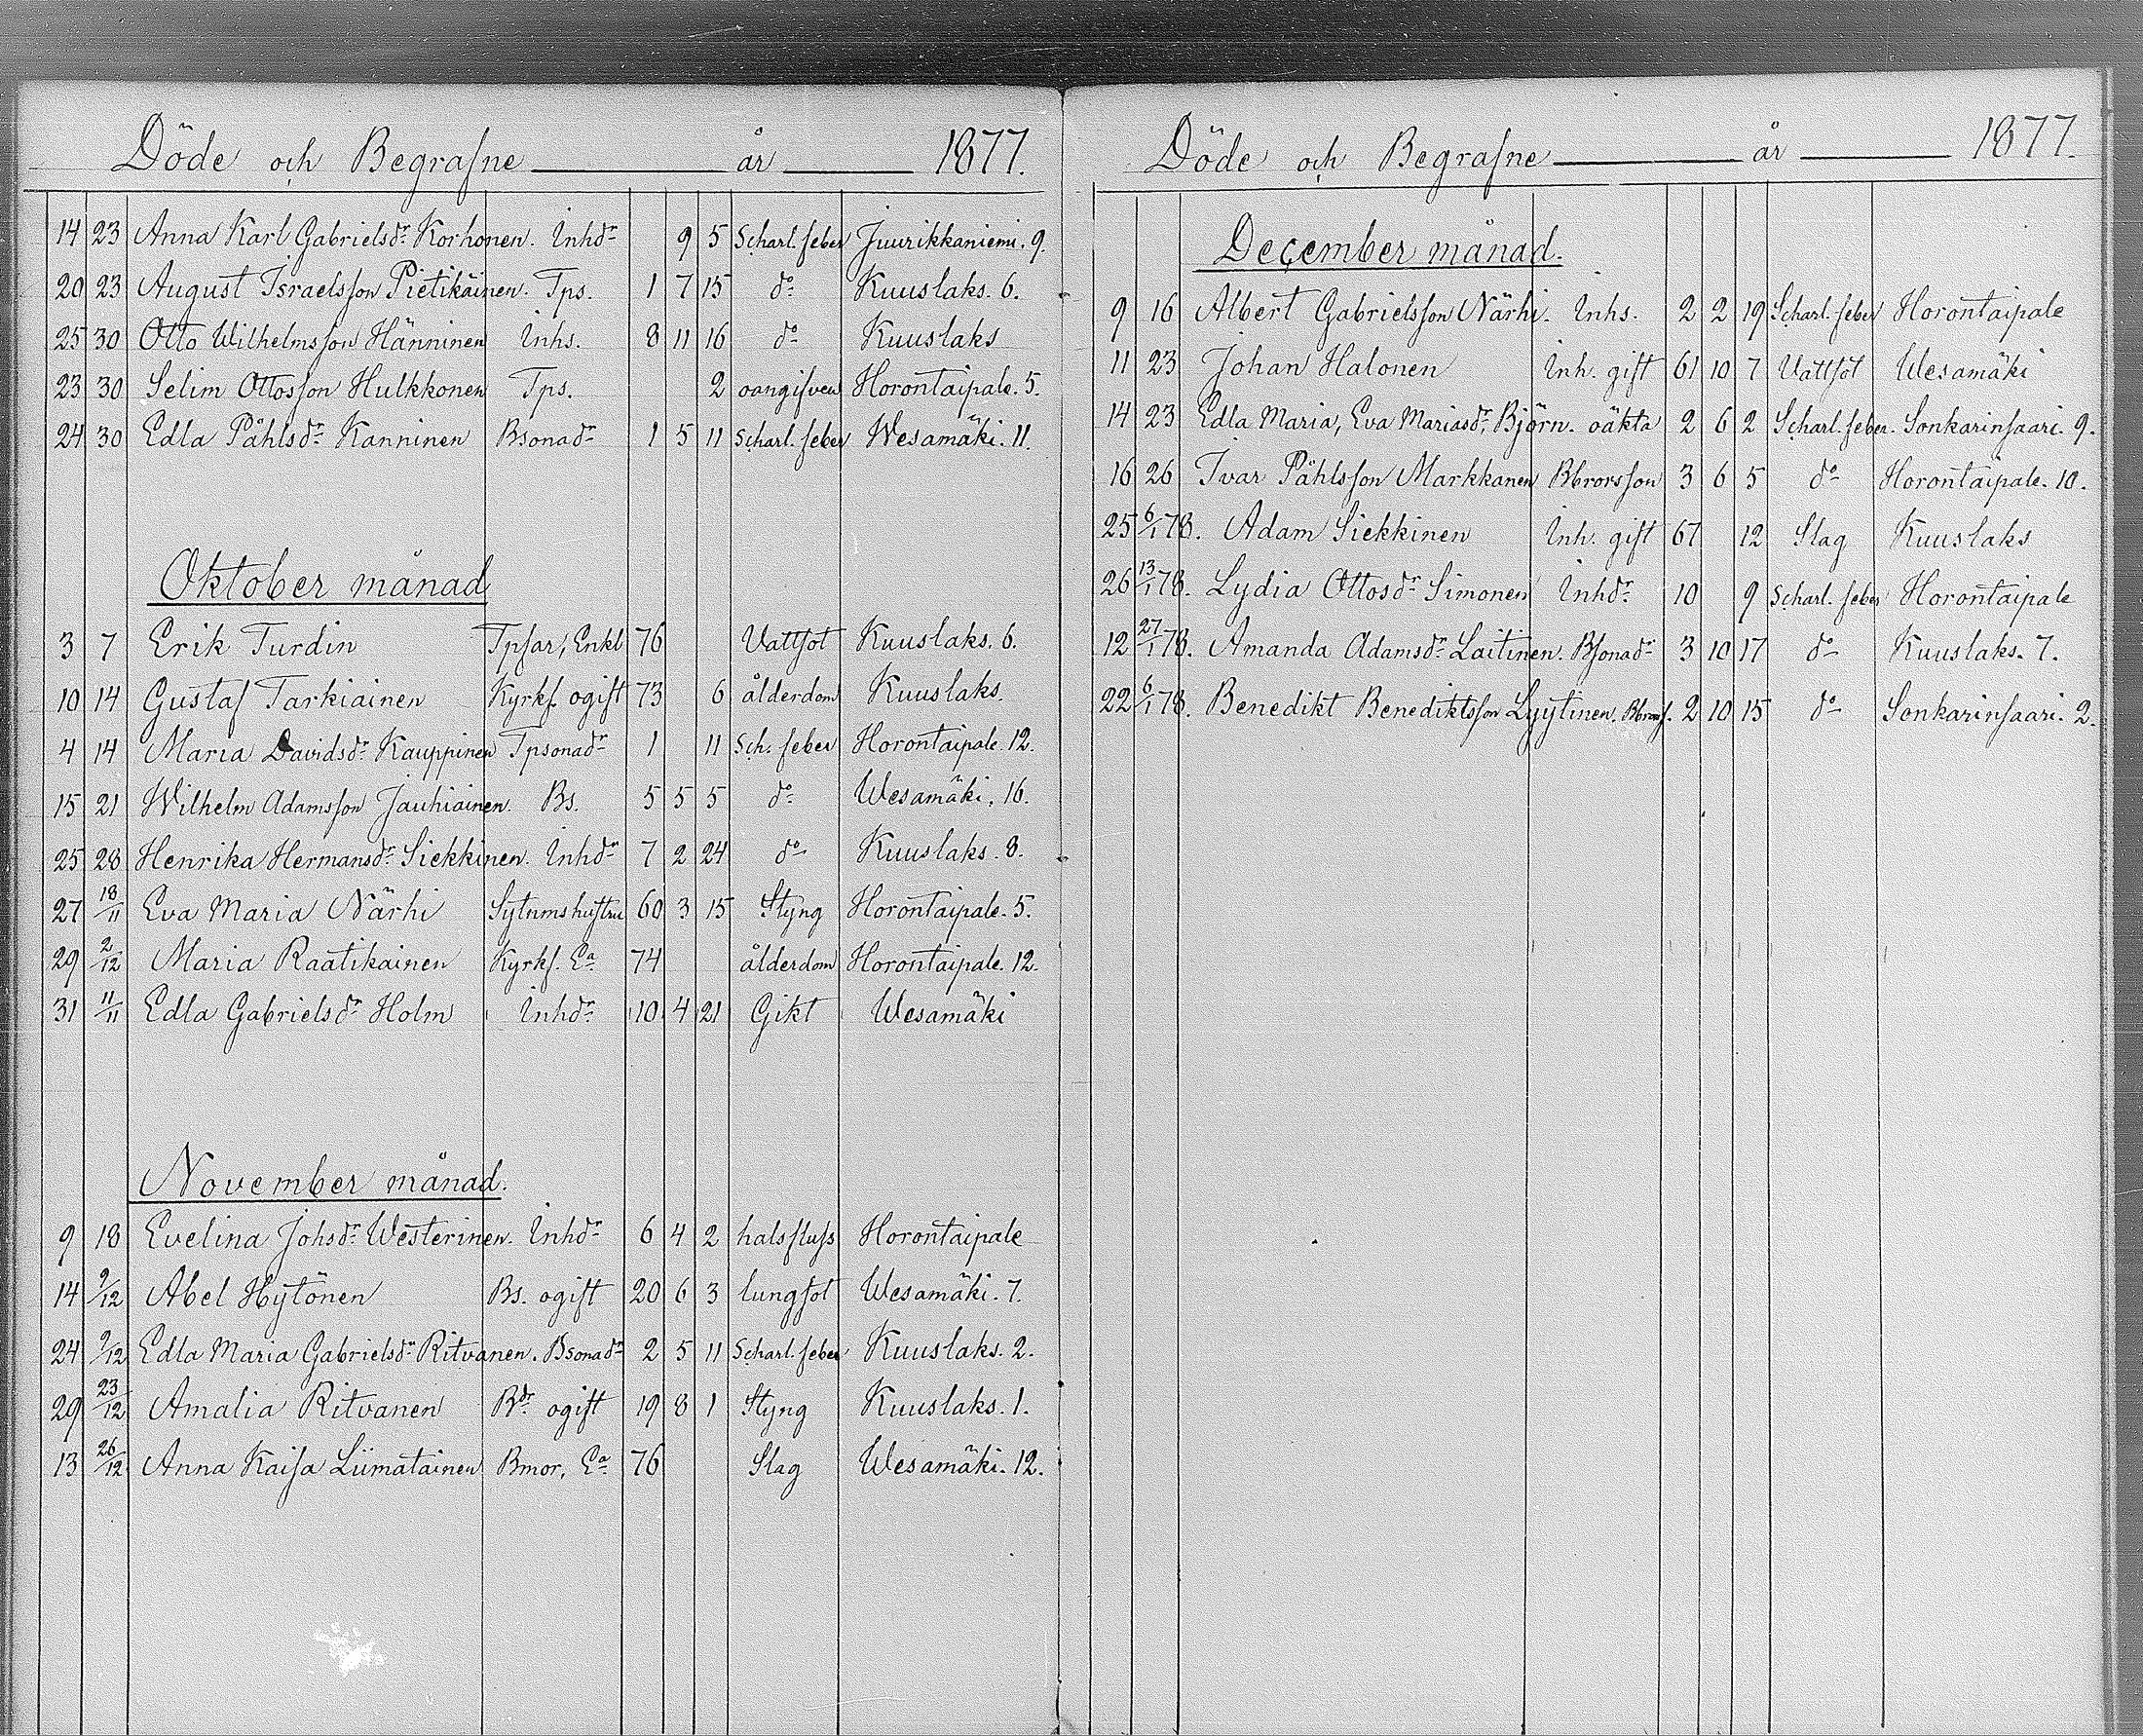 Döde och Begrafne år 1877.
14 23 Anna Karl Gabrielsdr Korhonen. Inhdr 9 5 Scharl. feber Juurikkaniemi. 9.
20 23 August Israelsson Pietikäinen. Tps. 1 7 15 do Kuuslaks. 6.
25 30 Otto Wilhelmsson Hänninen Inhs. 8 11 16 do Kuuslaks
23 30 Selim Ottosson Hulkkonen Tps. 2 oangifven Horontaipale. 5.
24 30 Edla Påhlsdr Kanninen Bsonadr 1 5 11 Scharl. feber Wesamäki. 11.
Oktober månad
3 7 Erik Turdin Tpfar, Enkl 76 Vattsot Kuuslaks. 6.
10 14 Gustaf Tarkiainen Kyrkf. ogift 73 6 ålderdom Kuuslaks.
4 14 Maria Davidsdr Kauppinen Tpsonadr 1 11 Sch. feber Horontaipale. 12.
15 21 Wilhelm Adamsson Jauhiainen. Bs. 5 5 5 do Wesamäki, 16.
25 28 Henrika Hermansdr Siekkinen. Inhdr 7 2 24 do Kuuslaks. 8.
27 18/11 Eva Maria Närhi Sytnmshustru 60 3 15 Styng Horontaipale. 5.
29 2/12 Maria Raatikainen Kyrkf. Ea 74 ålderdom Horontaipale. 12.
31 11/11 Edla Gabrielsdr Holm Inhdr 10 4 21 Gikt Wesamäki
November månad.
9 18 Evelina Johsdr Westerinen. Inhdr 6 4 2 halsfluss Horontaipale
14 9/12 Abel Hytönen Bs. ogift 20 6 3 lungsot Wesamäki. 7.
24 9/12 Edla Maria Gabrielsdr Ritvanen. Bsonadr 2 5 11 Scharl. feber Kuuslaks. 2.
29 23/12 Amalia Ritvanen Bdr ogift 19 8 1 Styng Kuuslaks. 1.
13 26/12 Anna Kaisa Liimatainen Bmor, Ea 76 Slag Wesamäki. 12.
Döde och Begrafne år 1877.
December månad.
9 16 Albert Gabrielsson Närhi. Inhs. 2 2 19 Scharl. feber Horontaipale
11 23 Johan Halonen Inh. gift 61 10 7 Vattsot Wesamäki
14 23 Edla Maria, Eva Mariasdr Björn. oäkta 2 6 2 Scharl. feber. Sonkarinsaari. 9.
16 26 Ivar Påhlsson Markkanen Bbrorsson 3 6 5 do Horontaipale. 10.
25 6/1 78. Adam Siekkinen Inh. gift 67 12 Slag Kuuslaks
26 13/1 78. Lydia Ottosdr Simonen Inhdr 10 9 Scharl. feber Horontaipale
12 27/1 78. Amanda Adamsdr Laitinen. Bsonadr 3 10 17 do Kuuslaks. 7.
22 6/1 78. Benedikt Benediktsson Lyytinen. 2 10 15 do Sonkarinsaari. 2.